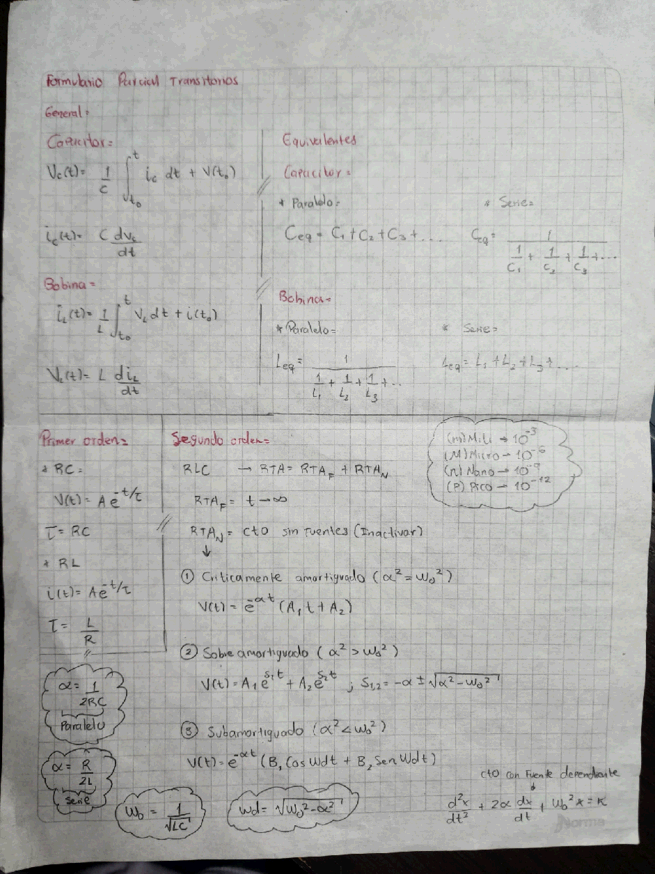 Formulario Parcial Transitorios
General:
Capacitor:
Vc(t) = 1/C ∫_{t0}^{t} ic dt + V(t0)
ic(t) = C dvc/dt
Bobina:
iL(t) = 1/L ∫_{t0}^{t} VL dt + i(t0)
VL(t) = L diL/dt
Equivalentes
Capacitor:
* Paralelo:
Ceq = C1 + C2 + C3 + ...
* Serie:
Ceq = 1/(1/C1 + 1/C2 + 1/C3 + ...)
Bobinas:
* Paralelo:
Leq = 1/(1/L1 + 1/L2 + 1/L3 + ...)
* Serie:
Leq = L1 + L2 + L3 + ...
Primer orden:
* RC:
V(t) = A e^{-t/τ}
τ = RC
* RL
i(t) = A e^{-t/τ}
τ = L/R
α = 1/2RC
Paralelo
α = R/2L
Serie
Segundo orden:
RLC → RTA = RTA_F + RTA_N
RTA_F = t → ∞
RTA_N = cto sin fuentes (Inactivar)
↓
① Criticamente amortiguado (α² = ω0²)
V(t) = e^{-αt} (A1 t + A2)
② Sobre amortiguado (α² > ω0²)
V(t) = A1 e^{s1t} + A2 e^{s2t} ; S1,2 = -α ± √(α² - ω0²)
③ Subamortiguado (α² < ω0²)
V(t) = e^{-αt} (B1 Cos ωdt + B2 Sen ωdt)
ω0 = 1/√LC
ωd = √(ω0² - α²)
(m) Mili → 10^{-3}
(M) Micro → 10^{-6}
(n) Nano → 10^{-9}
(P) Pico → 10^{-12}
cto con fuente dependiente
↓
d²x/dt² + 2α dx/dt + ω0² x = K
Norma